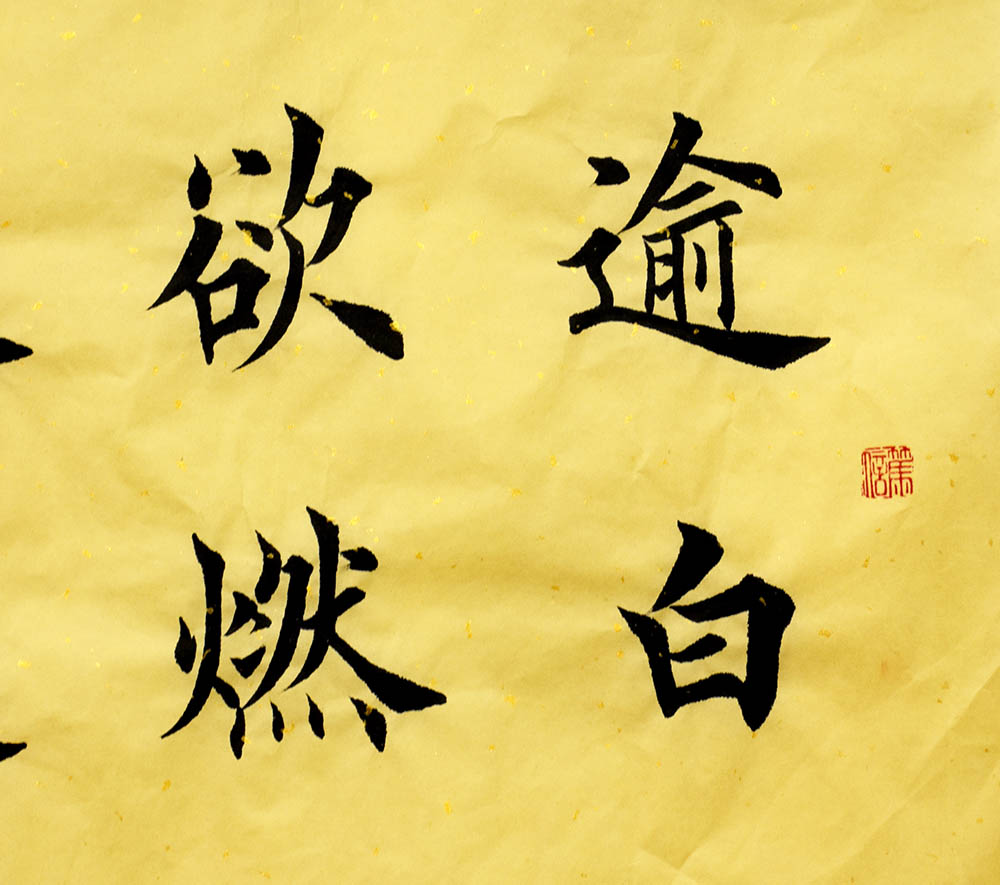 逾白
欲燃